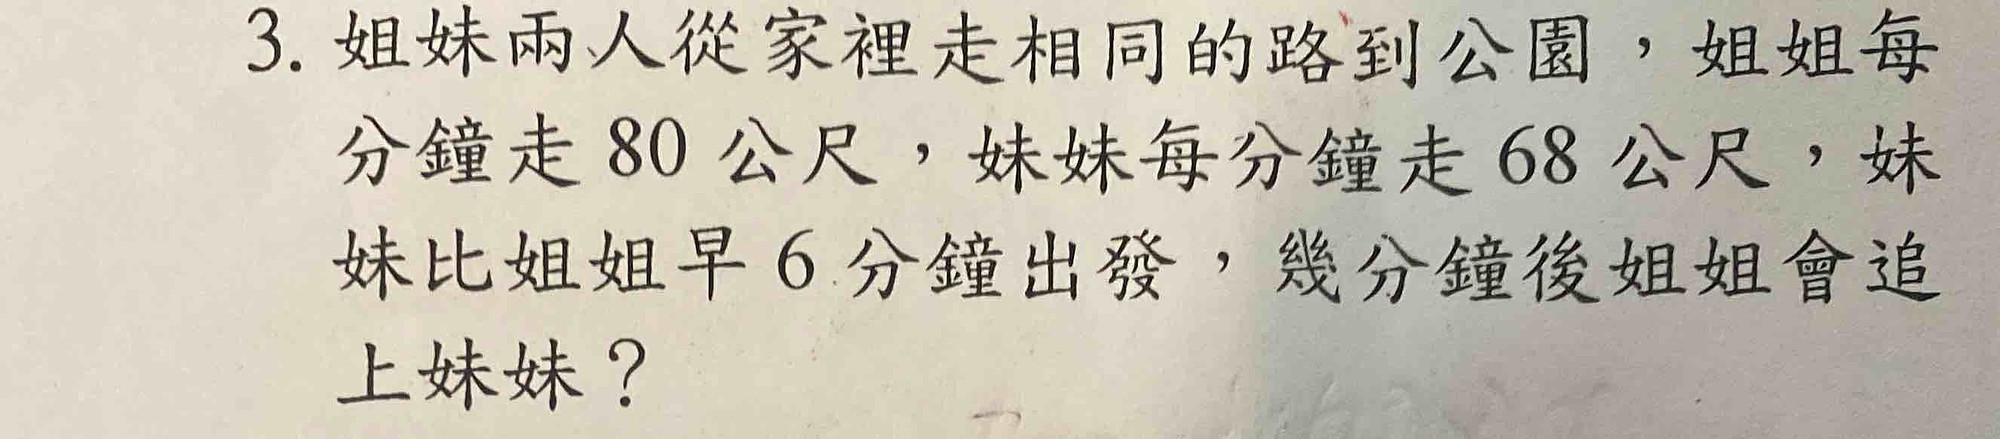 3. 姐妹兩人從家裡走相同的路到公園，姐姐每
分鐘走 80 公尺，妹妹每分鐘走 68 公尺，妹
妹比姐姐早 6 分鐘出發，幾分鐘後姐姐會追
上妹妹？